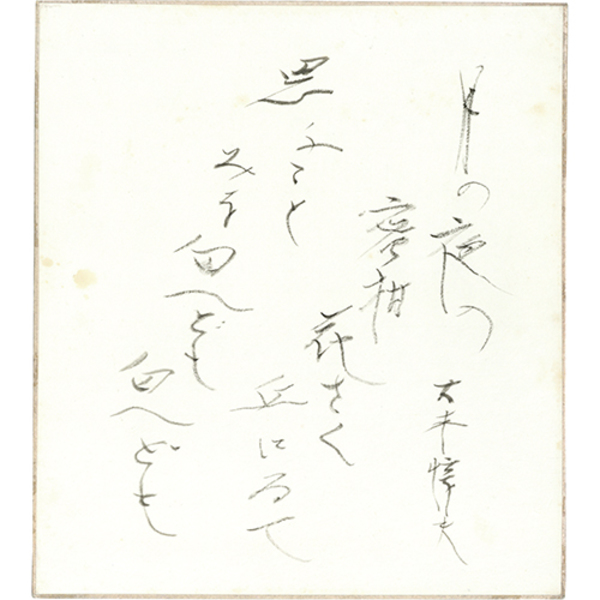 月の夜の
蜜柑
花さく
丘にゐて
思ふこと
みな
匂へども
匂へども
大木惇夫